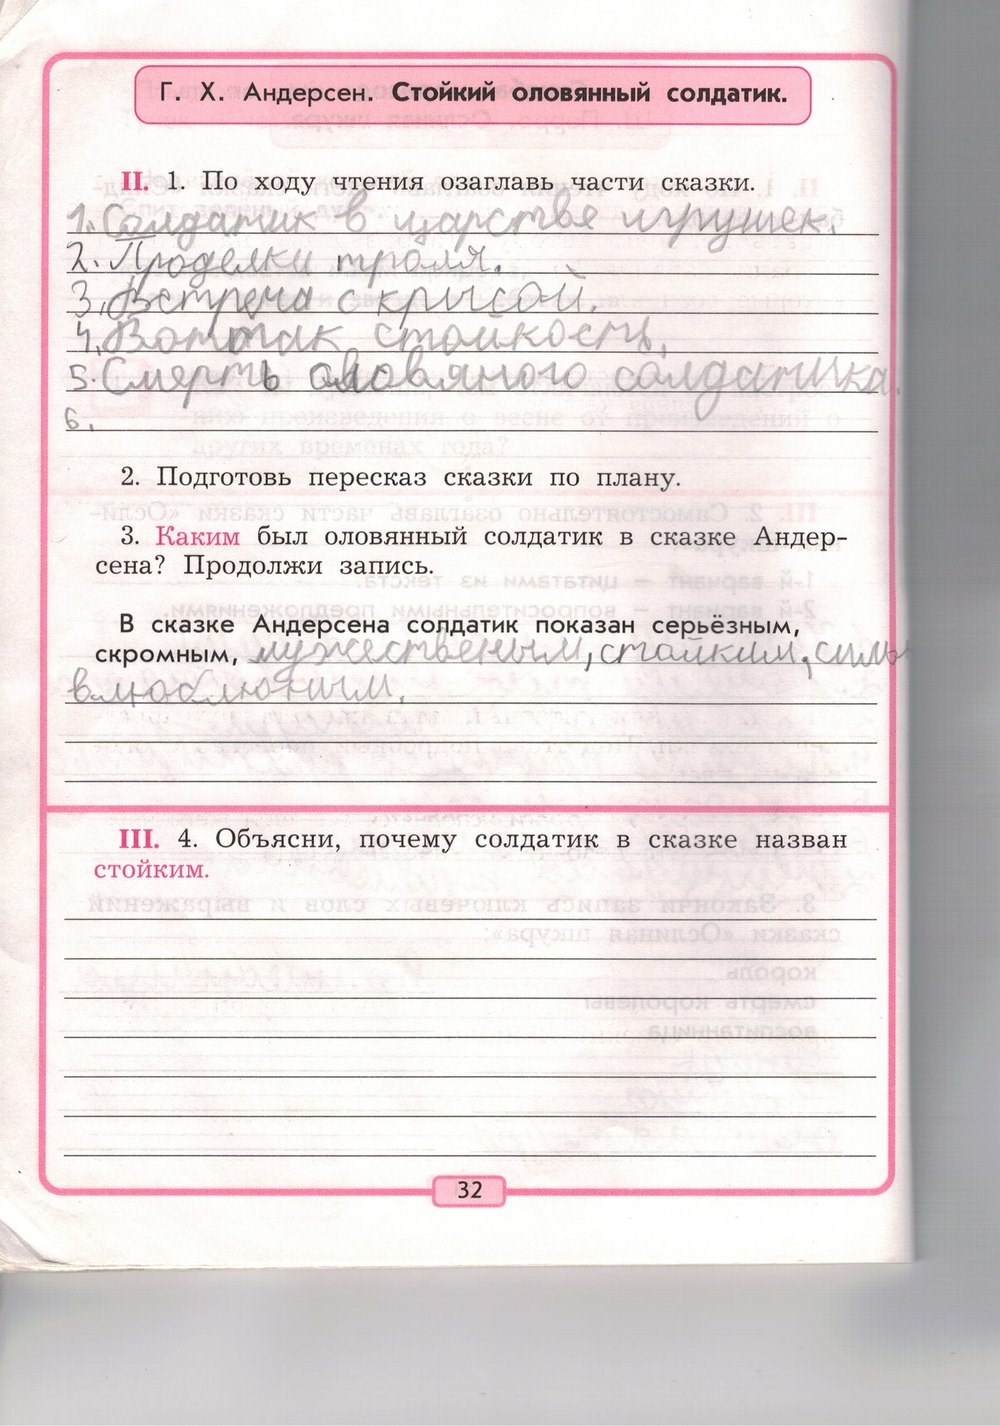 Г. Х. Андерсен. Стойкий оловянный солдатик.
II. 1. По ходу чтения озаглавь части сказки.
1. Солдатик в царстве игрушек.
2. Проделки троля.
3. Встреча с крысой.
4. Вот так стойкость.
5. Смерть оловяного солдатика.
6.
2. Подготовь пересказ сказки по плану.
3. Каким был оловянный солдатик в сказке Андер-
сена? Продолжи запись.
В сказке Андерсена солдатик показан серьёзным,
скромным, мужественым, стойким, силь
влюблюным.
III. 4. Объясни, почему солдатик в сказке назван
стойким.
32